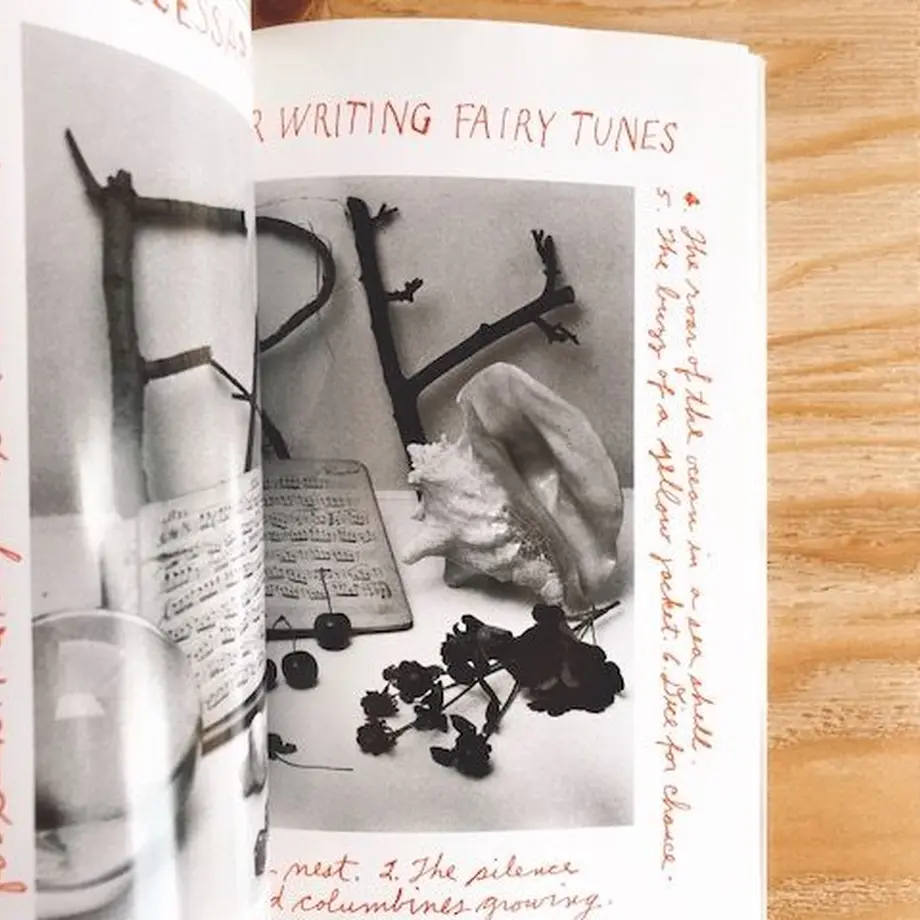 CESSA
R WRITING FAIRY TUNES
4. The roar of the ocean in a sea shell.
5. The buzz of a yellow jacket. 6. Dice for chance.
nest. 2. The silence
d columbines growing.